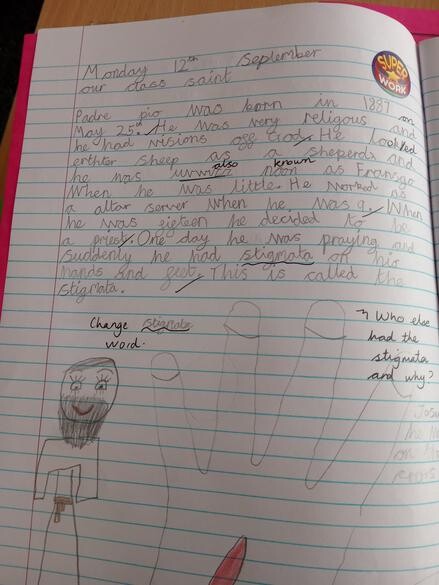 Monday 12th September
our class saint
SUPER
WORK
Padre pio was born in 1887 on
May 25th. He was very religous and
he had visions off God. He looked
erthter sheep as a sheperds and
also known
he was as Fransgo
When he was little. He worked as
a altar server when he was 9. When
he was eifteen he decided to be
a priest. One day he was praying and
suddenly he had stigmata on his
hands and feet. This is called the
stigmata.
Change stigmata
word.
Who else
had the
stigmata
and why?
Jose
he
on